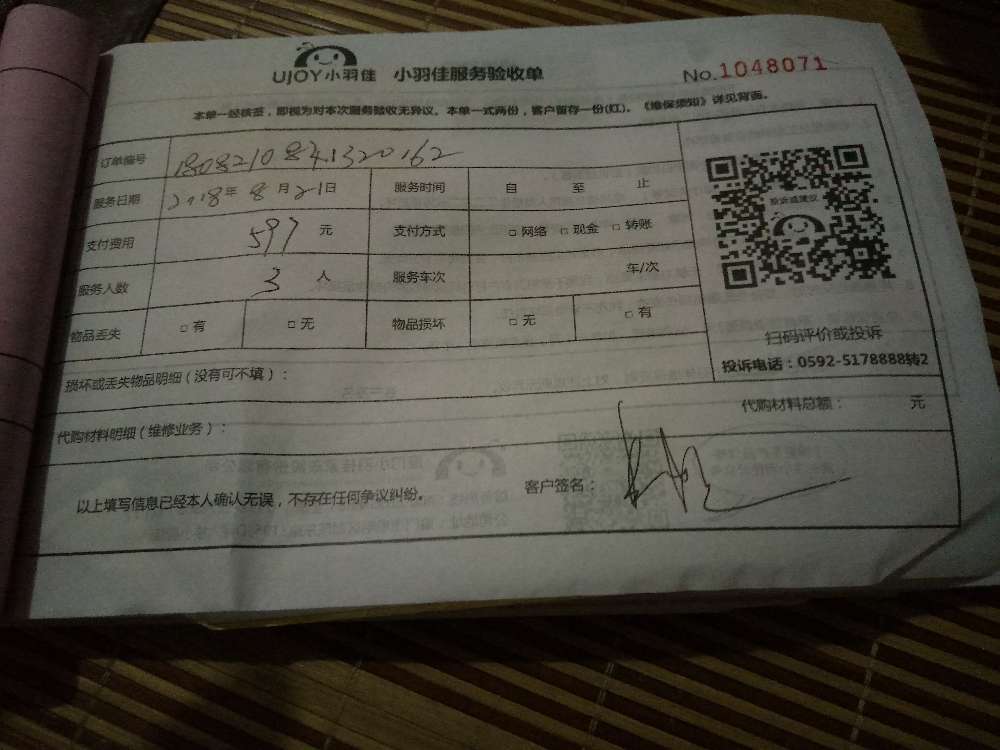 UJOY小羽佳 小羽佳服务验收单 No.1048071
本单一经核签，即视为对本次服务验收无异议。本单一式两份，客户留存一份(红)。《维保须知》详见背面。
订单编号 180821084320162
服务日期 2018年8月21日 服务时间 自 至 止
支付费用 597 元 支付方式 □网络 □现金 □转账
服务人数 3 人 服务车次 车/次
物品丢失 □有 □无 物品损坏 □无 □有
投诉或建议
扫码评价或投诉
投诉电话：0592-5178888转2
损坏或丢失物品明细（没有可不填）：
代购材料明细（维修业务）： 代购材料总额： 元
以上填写信息已经本人确认无误，不存在任何争议纠纷。 客户签名：